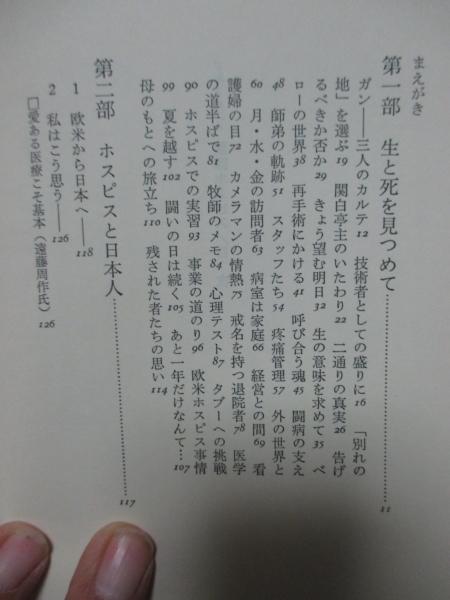 まえがき
第一部 生と死を見つめて……………………11
ガン——三人のカルテ12 技術者としての盛りに16 「別れの
地」を選ぶ19 関白亭主のいたわり22 二通りの真実26 告げ
るべきか否か29 きょう望む明日32 生の意味を求めて35 ベ
ローの世界38 再手術にかける41 呼び合う魂45 闘病の支え
48 師弟の軌跡51 スタッフたち54 疼痛管理57 外の世界と
60 月・水・金の訪問者63 病室は家庭66 経営との間69 看
護婦の目72 カメラマンの情熱75 戒名を持つ退院者78 医学
の道半ばで81 牧師のメモ84 心理テスト87 タブーへの挑戦
90 ホスピスでの実習93 事業の道のり96 欧米ホスピス事情
99 夏を越す102 闘いの日は続く105 あと一年だけなんて…107
母のもとへの旅立ち110 残された者たちの思い114
第二部 ホスピスと日本人……………………117
1 欧米から日本へ——118
2 私はこう思う——126
□愛ある医療こそ基本(遠藤周作氏) 126